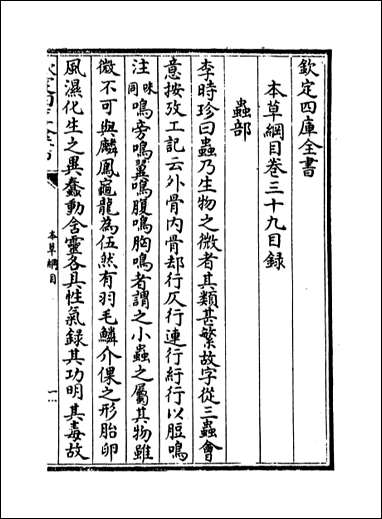 欽定四庫全書
本草綱目卷三十九目録
蟲部
李時珍曰蟲乃生物之微者其類甚繁故字從三蟲會
意按攷工記云外骨内骨却行仄行連行紆行以脰鳴
注味鳴旁鳴翼鳴腹鳴胸鳴者謂之小蟲之屬其物雖
同
微不可與麟鳳龜龍為伍然有羽毛鱗介倮之形胎卵
風濕化生之異蠢動含靈各具性氣録其功明其毒故
本草綱目
一